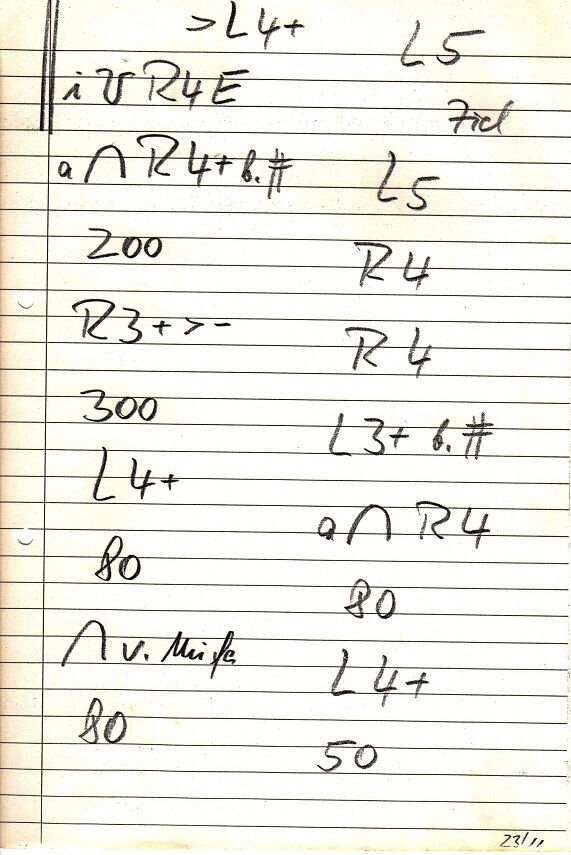 >L4+
i V R4E
a ∩ R4+ b.#
200
R3+>-
300
L4+
80
∩ v.
80
L5
Ziel
L5
R4
R4
L3+ b.#
a ∩ R4
80
L4+
50
23/11